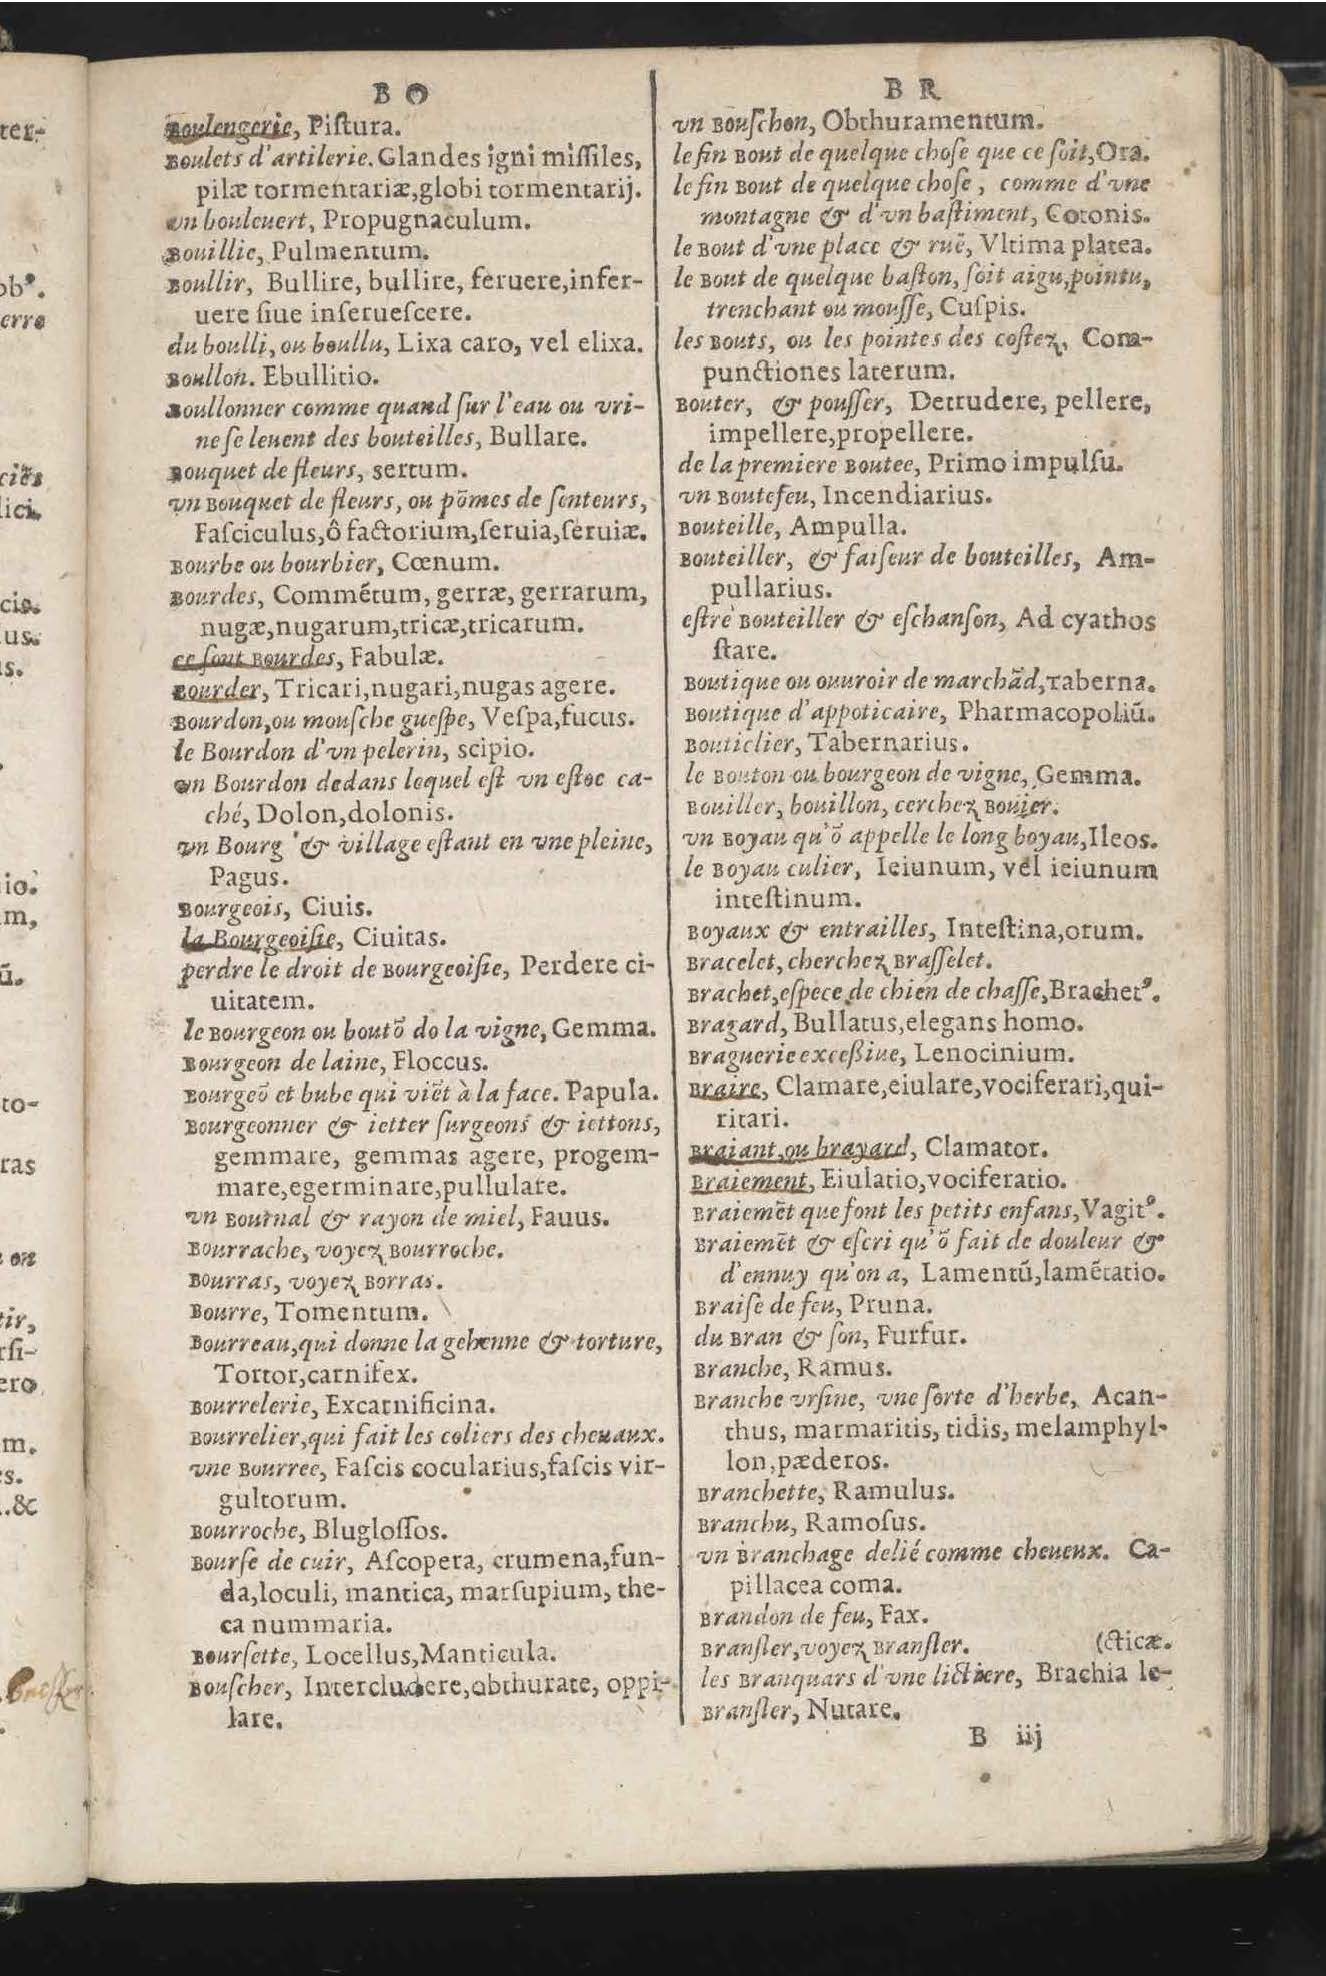 B O
Boulengerie, Piſtura.
Boulets d'artilerie. Glandes igni miſſiles,
pilæ tormentariæ,globi tormentarij.
vn bouleuert, Propugnaculum.
Bouillie, Pulmentum.
Boullir, Bullire, bullire, feruere,infer-
uere ſiue inferueſcere.
du boulli, ou boullu, Lixa caro, vel elixa.
Boullon. Ebullitio.
Boullonner comme quand ſur l'eau ou vri-
ne ſe leuent des bouteilles, Bullare.
Bouquet de fleurs, sertum.
vn Bouquet de fleurs, ou põmes de ſenteurs,
Faſciculus,ô factorium,ſeruia,ſeruiæ.
Bourbe ou bourbier, Cœnum.
Bourdes, Commẽtum, gerræ, gerrarum,
nugæ,nugarum,tricæ,tricarum.
ce ſont Bourdes, Fabulæ.
Bourder, Tricari,nugari,nugas agere.
Bourdon,ou mouſche gueſpe, Veſpa,fucus.
le Bourdon d'vn pelerin, scipio.
vn Bourdon dedans lequel eſt vn eſtoc ca-
ché, Dolon,dolonis.
vn Bourg & village eſtant en vne pleine,
Pagus.
Bourgeois, Ciuis.
la Bourgeoiſie, Ciuitas.
perdre le droit de Bourgeoiſie, Perdere ci-
uitatem.
le Bourgeon ou boutõ do la vigne, Gemma.
Bourgeon de laine, Floccus.
Bourgeõ et bube qui viẽt à la face. Papula.
Bourgeonner & ietter ſurgeons & iettons,
gemmare, gemmas agere, progem-
mare,egerminare,pullulare.
vn Bournal & rayon de miel, Fauus.
Bourrache, voyez Bourroche.
Bourras, voyez Borras.
Bourre, Tomentum.
Bourreau,qui donne la gehenne & torture,
Tortor,carnifex.
Bourrelerie, Excarnificina.
Bourrelier,qui fait les coliers des cheuaux.
vne Bourree, Faſcis cocularius,faſcis vir-
gultorum.
Bourroche, Bugloſſos.
Bourſe de cuir, Aſcopera, crumena,fun-
da,loculi, mantica, marſupium, the-
ca nummaria.
Bourſette, Locellus,Manticula.
Bouſcher, Intercludere,obthurare, oppi-
lare.
B R
vn Bouſchon, Obthuramentum.
le fin Bout de quelque choſe que ce ſoit,Ora.
le fin Bout de quelque choſe, comme d'vne
montagne & d'vn baſtiment, Coronis.
le Bout d'vne place & ruë, Vltima platea.
le Bout de quelque baſton, ſoit aigu,pointu,
trenchant ou mouſſe, Cuſpis.
les Bouts, ou les pointes des coſtez, Com-
punctiones laterum.
Bouter, & pouſſer, Detrudere, pellere,
impellere,propellere.
de la premiere Boutee, Primo impulſu.
vn Boutefeu, Incendiarius.
Bouteille, Ampulla.
Bouteiller, & faiſeur de bouteilles, Am-
pullarius.
eſtre Bouteiller & eſchanſon, Ad cyathos
ſtare.
Boutique ou ouuroir de marchãd,Taberna.
Boutique d'appoticaire, Pharmacopoliũ.
Bouticlier, Tabernarius.
le Bouton ou bourgeon de vigne, Gemma.
Bouiller, bouillon, cerchez Bouier.
vn Boyau qu'õ appelle le long boyau,Ileos.
le Boyau culier, Ieiunum, vel ieiunum
inteſtinum.
Boyaux & entrailles, Inteſtina,orum.
Bracelet, cherchez Braſſelet.
Brachet,eſpece de chien de chaſſe,Brachetꝰ.
Bragard, Bullatus,elegans homo.
Braguerie exceßiue, Lenocinium.
Braire, Clamare,eiulare,vociferari,qui-
ritari.
Braiant,ou brayard, Clamator.
Braiement, Eiulatio,vociferatio.
Braiemẽt que font les petits enfans,Vagitꝰ.
Braiemẽt & eſcri qu'õ fait de douleur &
d'ennuy qu'on a, Lamentũ,lamẽtatio.
Braiſe de feu, Pruna.
du Bran & ſon, Furfur.
Branche, Ramus.
Branche vrſine, vne ſorte d'herbe, Acan-
thus, marmaritis, tidis, melamphyl-
lon,pæderos.
Branchette, Ramulus.
Branchu, Ramoſus.
vn Branchage delié comme cheueux. Ca-
pillacea coma.
Brandon de feu, Fax.
Branſler,voyez Branſler. (cticæ.
les Branquars d'vne lictiere, Brachia le-
Branſler, Nutare.
B iij